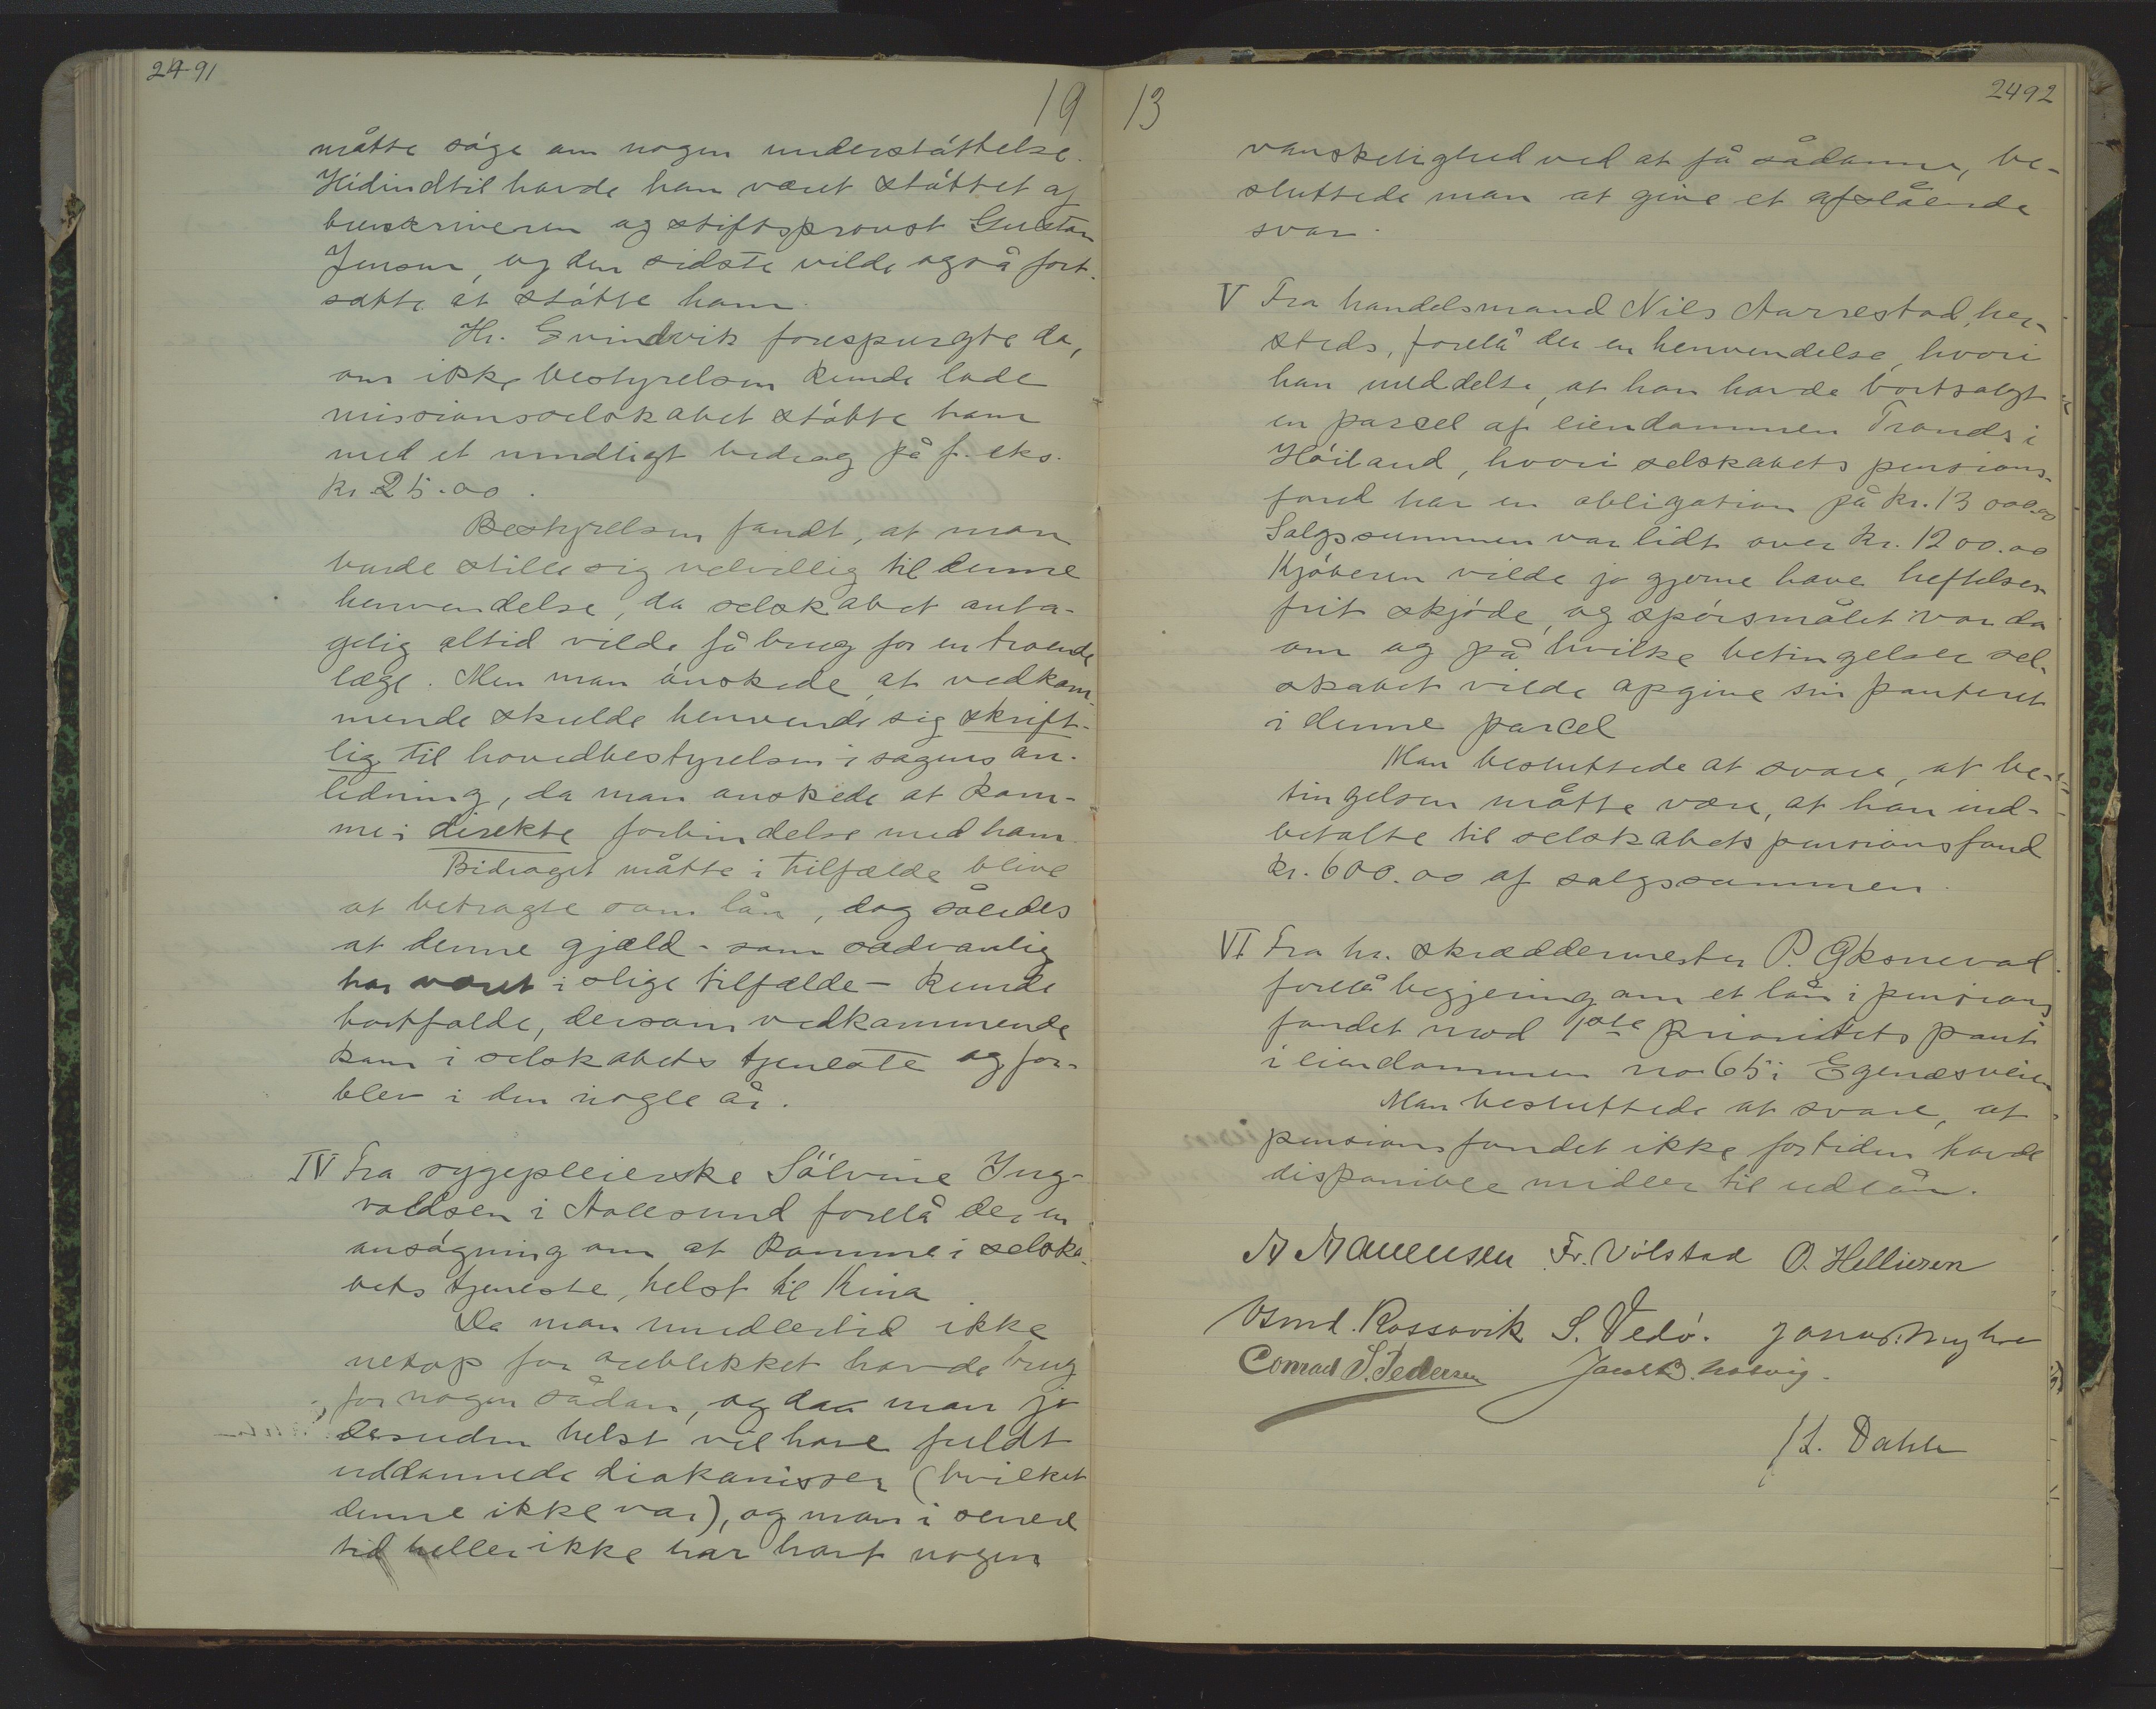 2491
19
måtte søge om nogen understøttelse.
Hidindtil havde han været støttet af
brevskriveren og stiftsprovst Gustav
Jensen, og den sidste vilde også fort-
sætte at støtte ham.
Hr. Evindvik forespurgte da,
om ikke bestyrelsen kunde lade
missionsselskabet støtte ham
med et mndligt bidrag på f. eks.
kr 25.00.
Bestyrelsen fandt, at man
burde stille sig velvillig til denne
henvendelse, da selskabet anta-
gelig altid vilde få brug for en troende
læge. Men man ønskede, at vedkom-
mende skulde henvende sig skrift-
lig til hovedbestyrelsen i sagens an-
ledning, da man ønskede at kom-
me i direkte forbindelse med ham.
Bidraget måtte i tilfælde blive
at betragte som lån, dog således
at denne gjæld - som sædvanlig
har været i slige tilfælde - kunde
bortfalde, dersom vedkommende
kom i selskabets tjeneste og for-
blev i den nogle år.
IV Fra sygepleierske Sølvine Ing-
valdsen i Aalesund forelå der en
ansøgning om at komme i selska-
bets tjeneste, helst til Kina.
Da man imidlertid ikke
netop for øieblikket havde brug
for nogen sådan, og da man jo
desuden helst vil have fuldt
uddannede diakonisser (hvilket
denne ikke var), og man i senere
tid heller ikke har havt nogen
13
2492
vanskelighed ved at få sådanne, be-
sluttede man at give et afslående
svar.
V Fra handelsmand Nils Aarrestad, her-
steds, forelå der en henvendelse, hvori
han meddelte, at han havde bortsolgt
en parcel af eiendommen Tronds i
Høiland, hvori selskabets pensions-
fond har en obligation på kr. 13 000.00
Salgssummen var lidt over kr. 1200.00
Kjøberen vilde jo gjerne have heftelses-
frit skjøde, og spørsmålet var da
om og på hvilke betingelser sel-
skabet vilde opgive sin panteret
i denne parcel
Man besluttede at svare, at be-
tingelsen måtte være, at han ind-
betalte til selskabets pensionsfond
kr. 600.00 af salgssummen.
VI Fra hr. skræddermester P. Oksnevad
forelå begjering om et lån i pensions
fondet mod 1ste prioritets pant
i eiendommen no 65 i Egenæsveien
Man besluttede at svare, at
pensionsfondet ikke fortiden havde
disponible midler til udlån.
A Aanensen Fr. Vølstad O. Helliesen
Osmd. Rossavik S. Vedø. Jonas. Myhre
Conrad S. Pedersen Jacob
L. Dahle